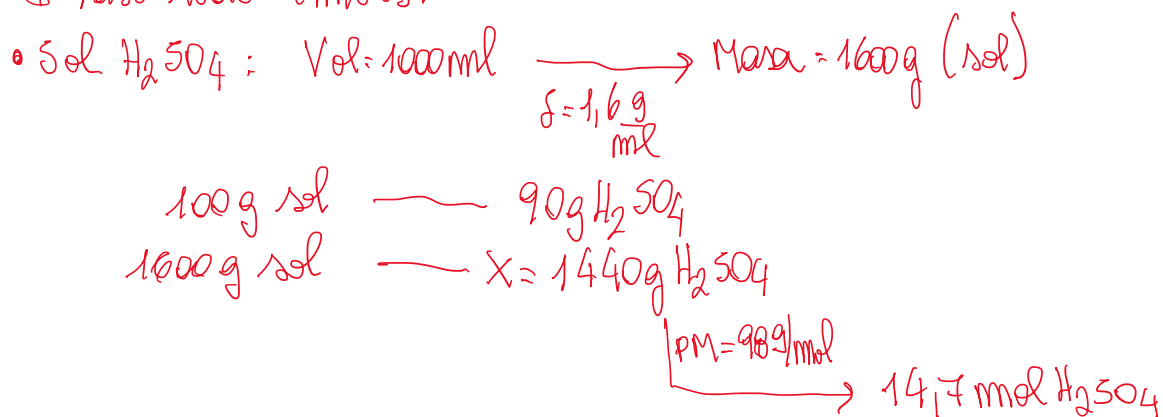 • Sol H₂SO₄ : Vol = 1000 ml → Masa = 1600 g (sol)
δ = 1,6 g/ml
100 g sol — 90 g H₂SO₄
1600 g sol — X = 1440 g H₂SO₄
PM = 98 g/mol
→ 14,7 mol H₂SO₄